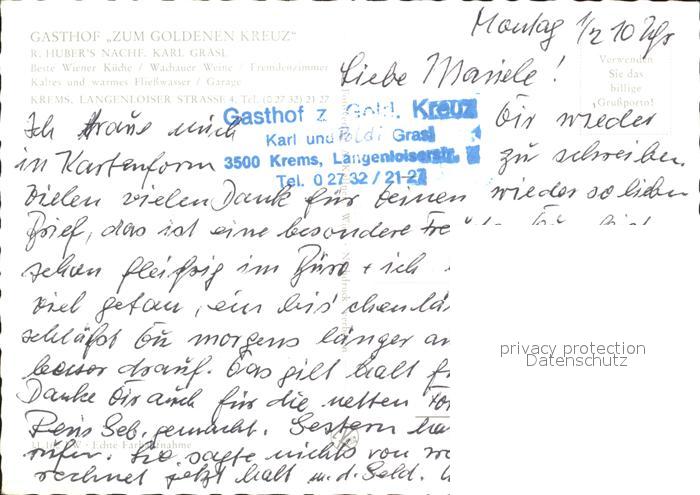 Montag 1/2 10 Uhr
GASTHOF „ZUM GOLDENEN KREUZ“
R. HUBER'S NACHF. KARL GRASL
Beste Wiener Küche / Wachauer Weine / Fremdenzimmer
Kaltes und warmes Fließwasser / Garage
KREMS, LANGENLOISER STRASSE 4, Tel. (0 27 32) 21 27
Verwenden
Sie das
billige
„Grußporto!
Liebe Mariele!
Gasthof z. Gold. Kreuz
Karl und Poldi Grasl
3500 Krems, Langenloiserstr.
Tel. 0 27 32 / 21 27
Ich traue mich Dir wieder
in Kartenform zu schreiben.
Vielen vielen Dank für Deinen wieder so lieben
Brief, das ist eine besondere
schon fleißig im Büro + ich
viel getan, ein bis'chen
schläfst Du morgens länger
besser drauf. Das gilt halt
Danke Dir auch für die netten
gemacht. Gestern
rufen. Sie sagte nichts von
rechnet jetzt halt m. d. Geld.
Echte Farbaufnahme
privacy protection
Datenschutz